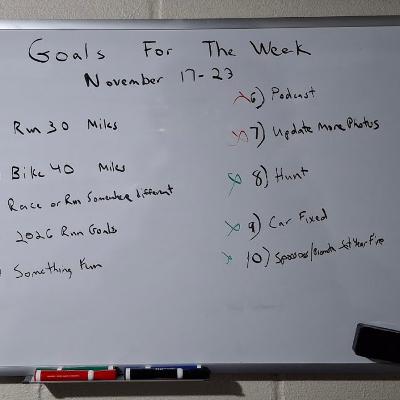 Goals For The Week
November 17-23
Run 30 Miles
Bike 40 Miles
Race or Run Somewhere different
2026 Run Goals
Something Fun
6) Podcast
7) Update More Photos
8) Hunt
9) Car Fixed
10) 1st Year Fire